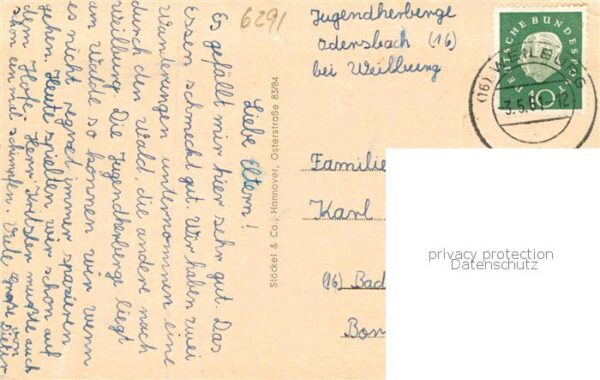 6291
Jugendherberge
Odersbach (16)
bei Weilburg
DEUTSCHE BUNDESPOST
10
(16) WEILBURG
3.5.61-12
Liebe Eltern!
Es gefällt mir hier sehr gut. Das
Essen schmeckt gut. Wir haben zwei
Wanderungen unternommen eine
durch den Wald, die andere nach
Weilburg. Die Jugendherberge liegt
am Walde so können wir wenn
es nicht regnet immer spazieren
gehen. Heute spielten wir schon auf
dem Hofe. Herr mußte auch
schon einmal schimpfen. Viele Grüße von
Dieter
Stöckel & Co., Hannover, Osterstraße 83/84
Familie
Karl
(16) Bad
Bom
privacy protection
Datenschutz